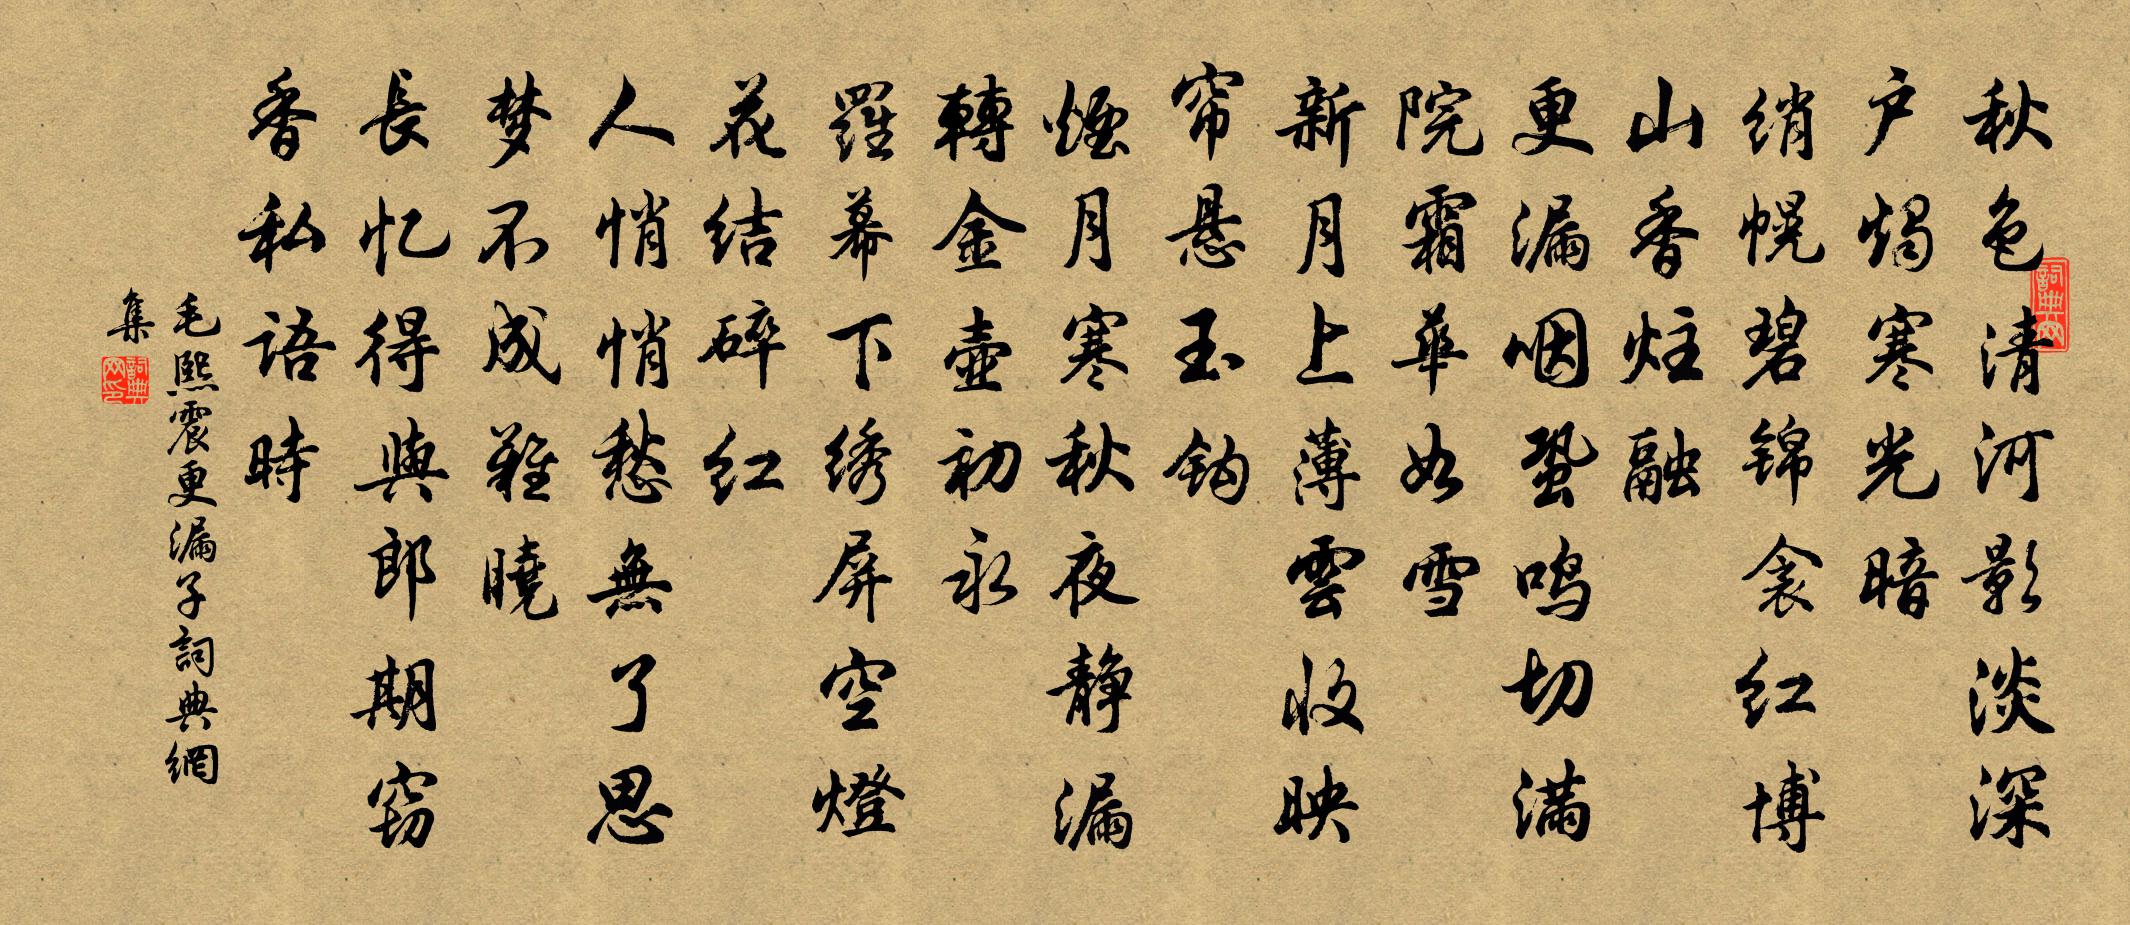 秋色清河影淡深
户燭寒光暗
绡幌碧锦衾红博
山香炷融
更漏咽蛩鸣切满
院霜華如雪
新月上薄雲收映
帘悬玉钩
煙月寒秋夜静漏
轉金壺初永
羅幕下绣屏空燈
花结碎红
人悄悄愁無了思
梦不成難曉
長忆得與郎期窃
香私語時
毛熙震更漏子詞典網
集
詞典网
詞典网印